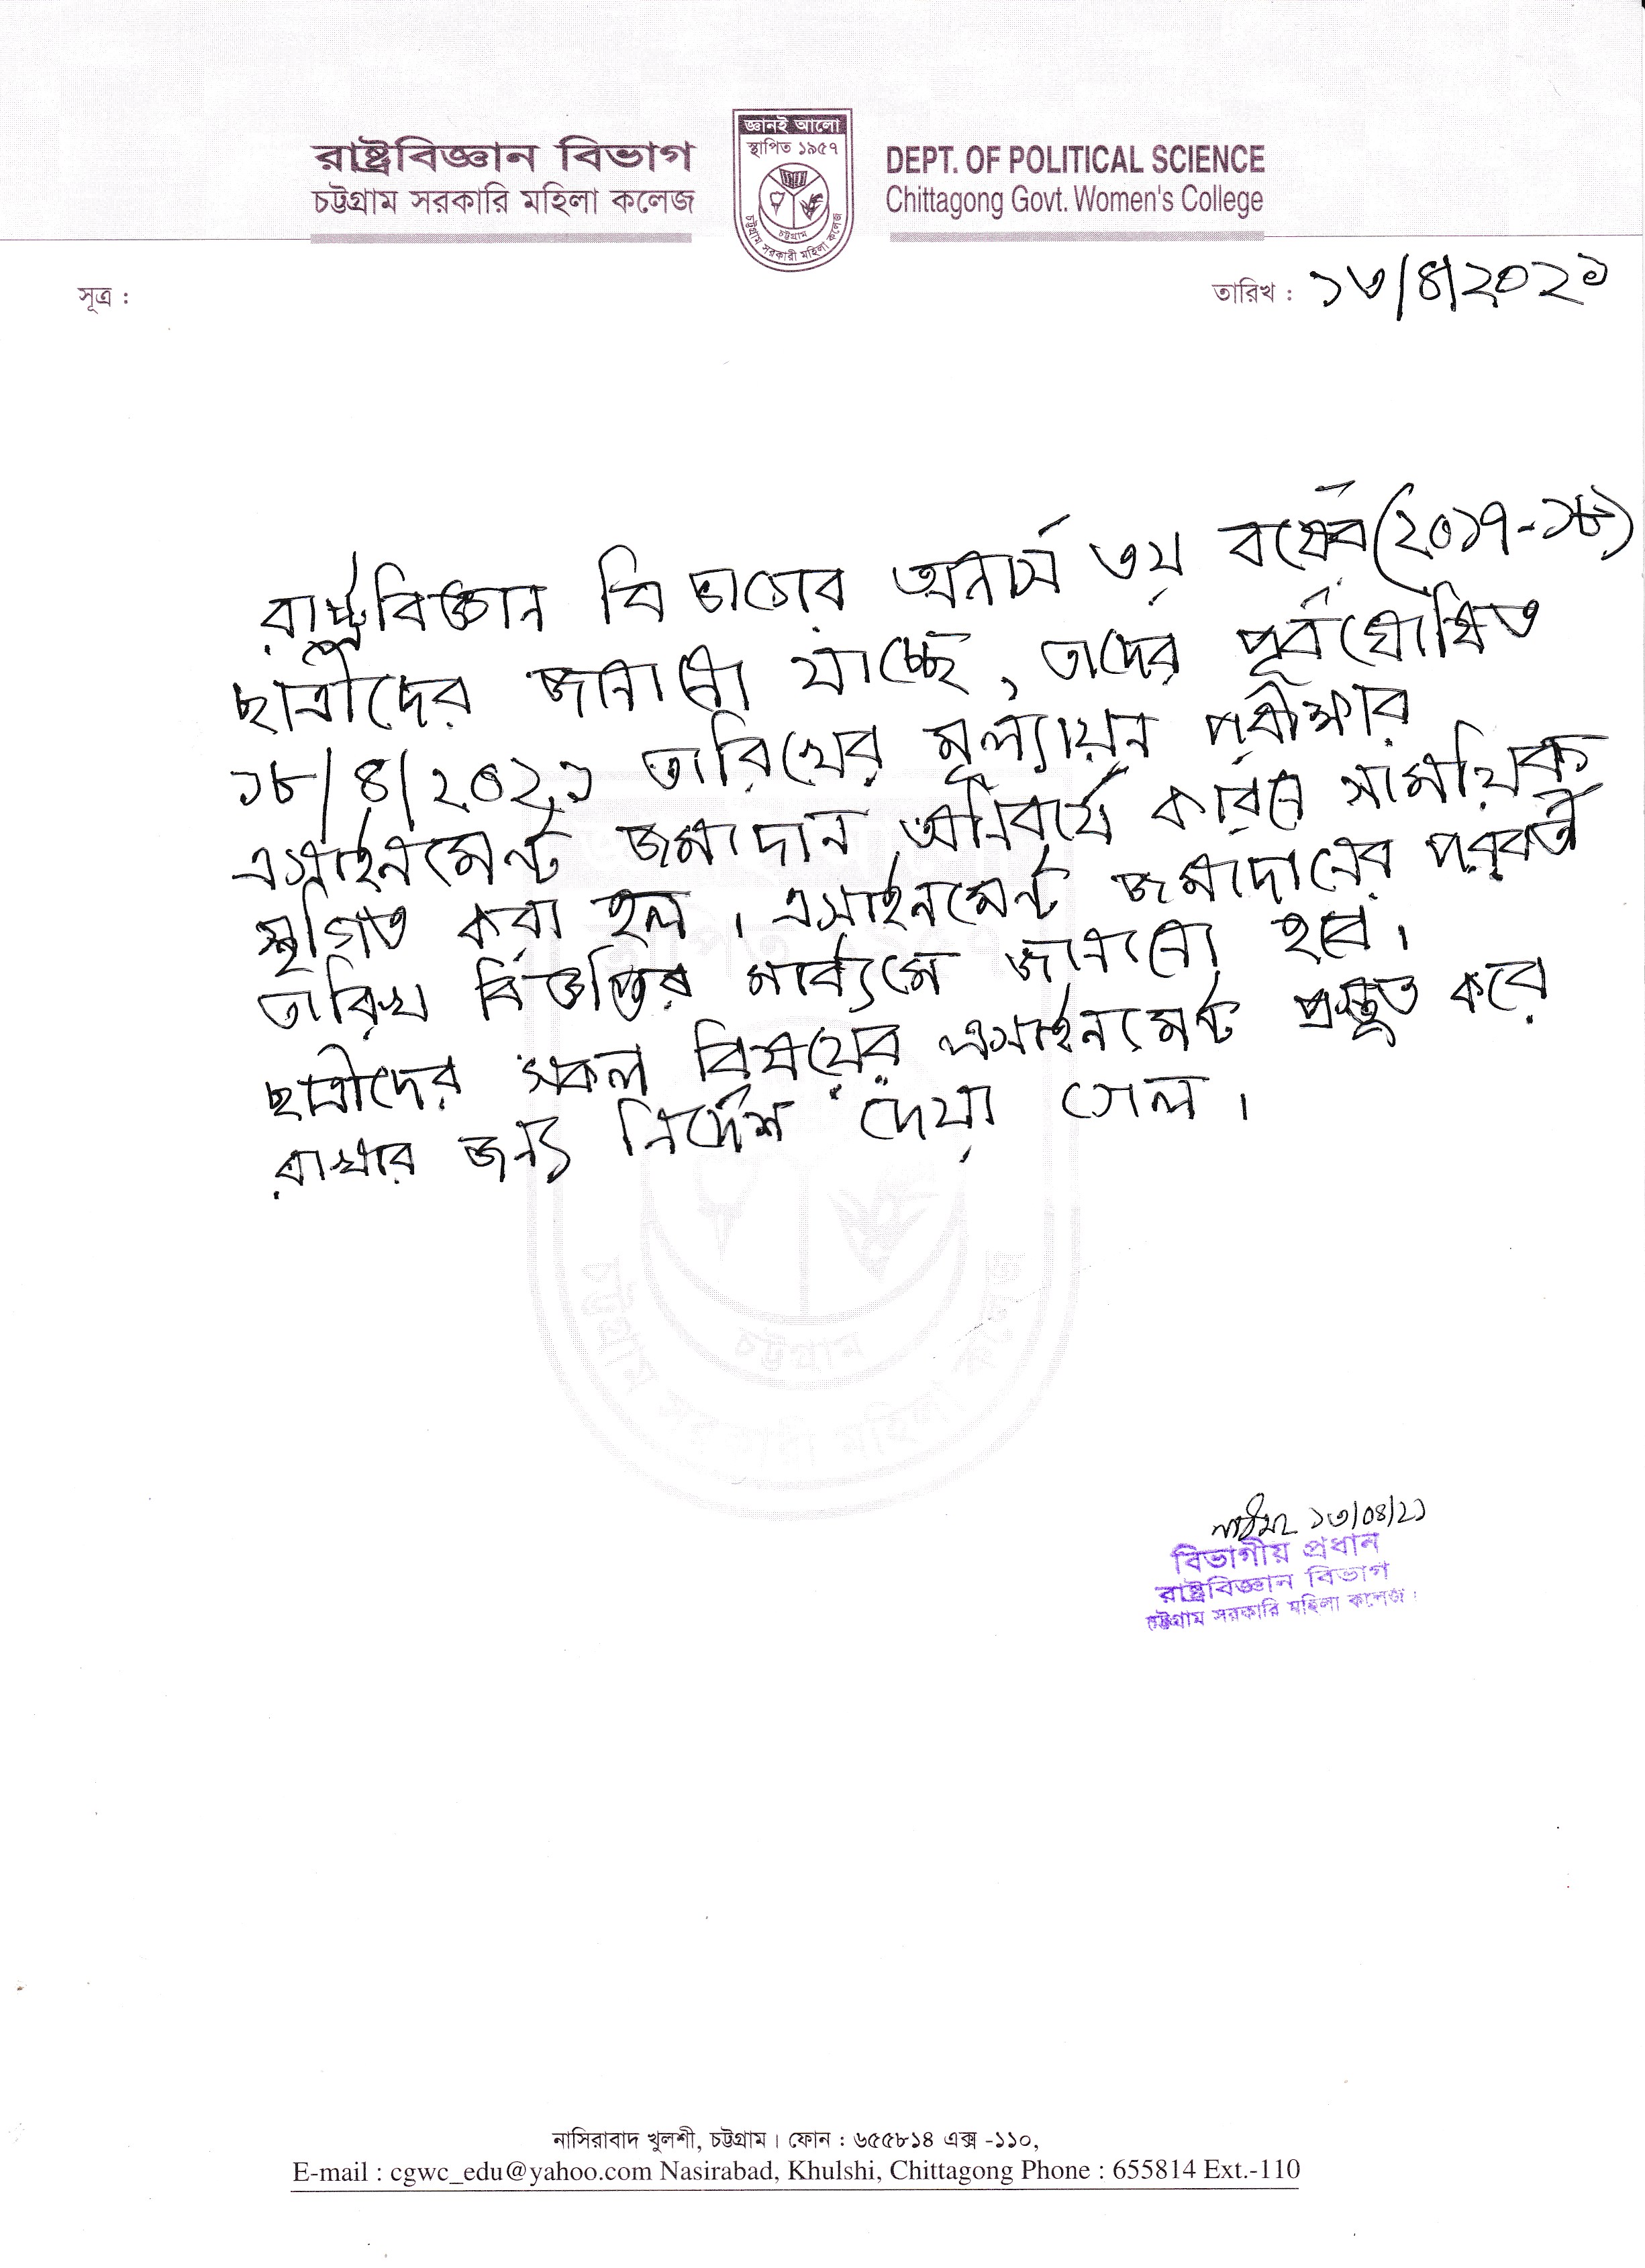 জ্ঞানই আলো
স্থাপিত ১৯৫৭
চট্টগ্রাম
চট্টগ্রাম সরকারী মহিলা কলেজ
রাষ্ট্রবিজ্ঞান বিভাগ
চট্টগ্রাম সরকারি মহিলা কলেজ
DEPT. OF POLITICAL SCIENCE
Chittagong Govt. Women's College
সূত্র :
তারিখ : ১৩/৪/২০২১
রাষ্ট্রবিজ্ঞান বিভাগের অনার্স ৩য় বর্ষের (২০১৭-১৮)
ছাত্রীদের জানানো যাচ্ছে, তাদের পূর্বঘোষিত
১৮/৪/২০২১ তারিখের মূল্যায়ন পরীক্ষার
এসাইনমেন্ট জমাদান অনিবার্য কারণে সাময়িক
স্থগিত করা হল। এসাইনমেন্ট জমাদানের পরবর্তী
তারিখ বিজ্ঞপ্তির মাধ্যমে জানানো হবে।
ছাত্রীদের সকল বিষয়ের এসাইনমেন্ট প্রস্তুত করে
রাখার জন্য নির্দেশ দেয়া গেল।
চট্টগ্রাম
চট্টগ্রাম সরকারী মহিলা কলেজ
১৩/০৪/২১
বিভাগীয় প্রধান
রাষ্ট্রবিজ্ঞান বিভাগ
চট্টগ্রাম সরকারি মহিলা কলেজ।
নাসিরাবাদ খুলশী, চট্টগ্রাম। ফোন : ৬৫৫৮১৪ এক্স -১১০,
E-mail : cgwc_edu@yahoo.com Nasirabad, Khulshi, Chittagong Phone : 655814 Ext.-110